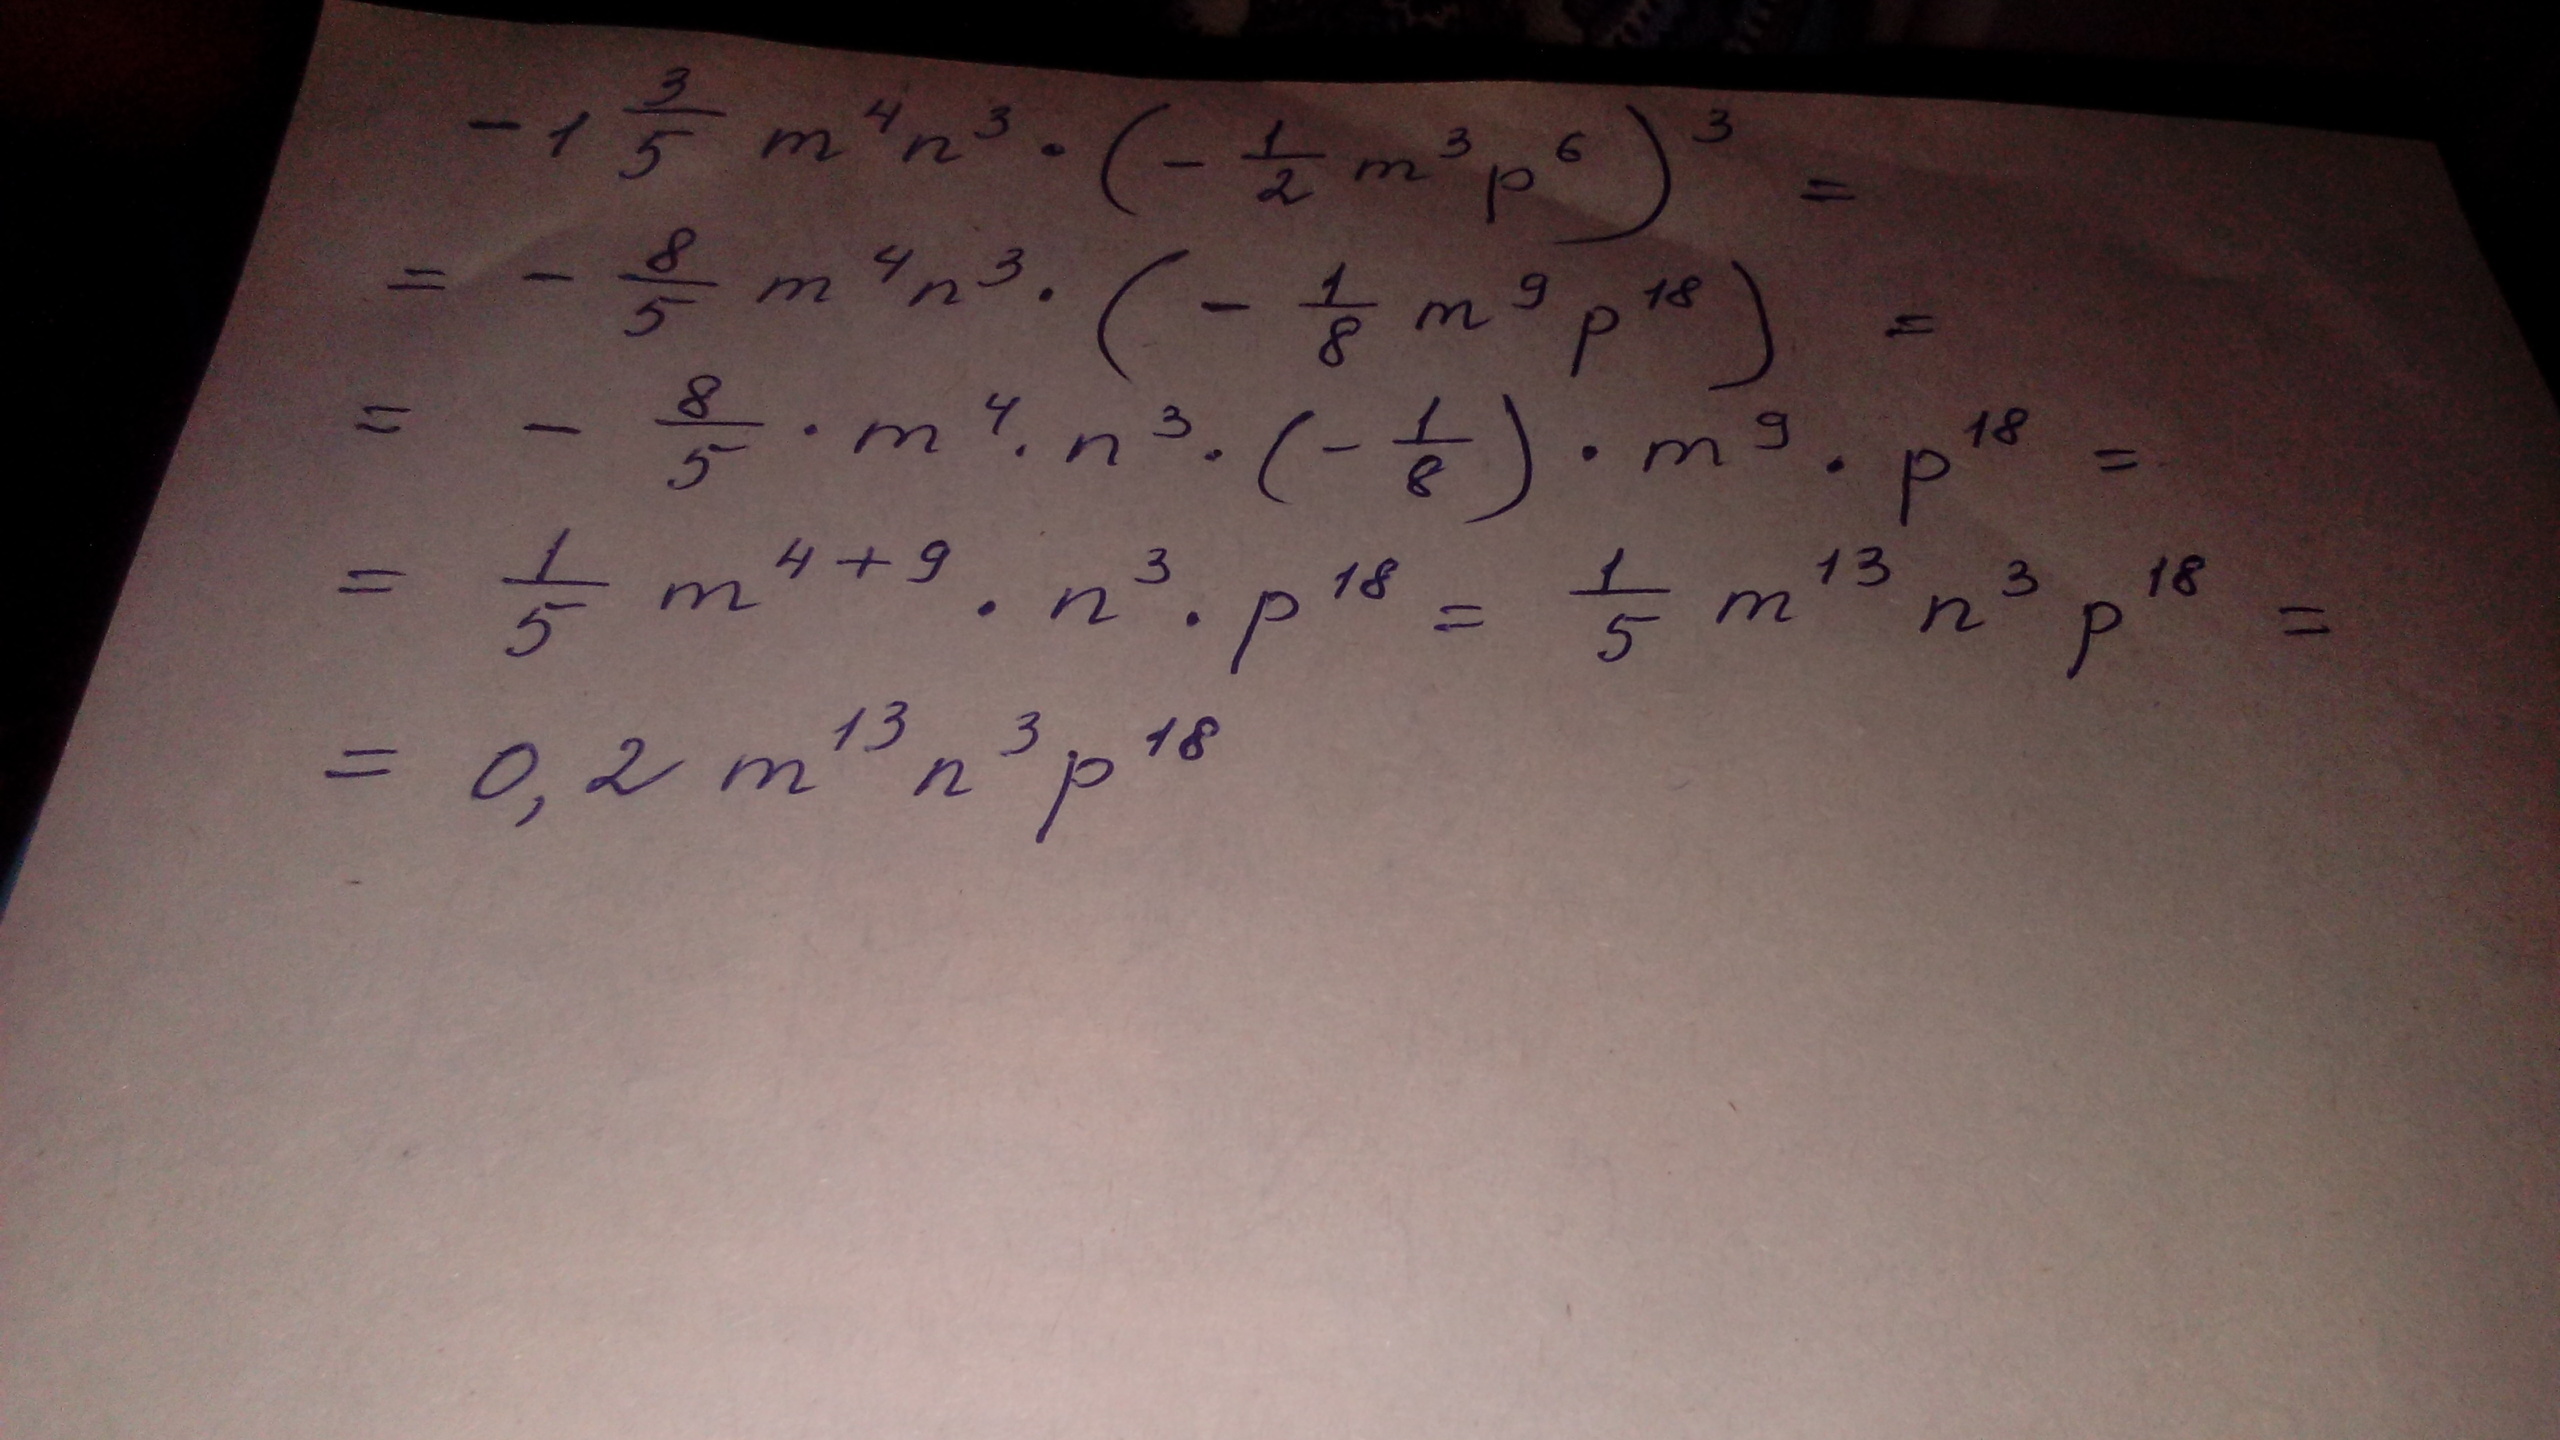 -1 3/5 m⁴n³ · (- 1/2 m³p⁶)³ =
= - 8/5 m⁴n³ · (- 1/8 m⁹p¹⁸) =
= - 8/5 · m⁴ · n³ · (- 1/8) · m⁹ · p¹⁸ =
= 1/5 m⁴⁺⁹ · n³ · p¹⁸ = 1/5 m¹³n³p¹⁸ =
= 0,2 m¹³n³p¹⁸